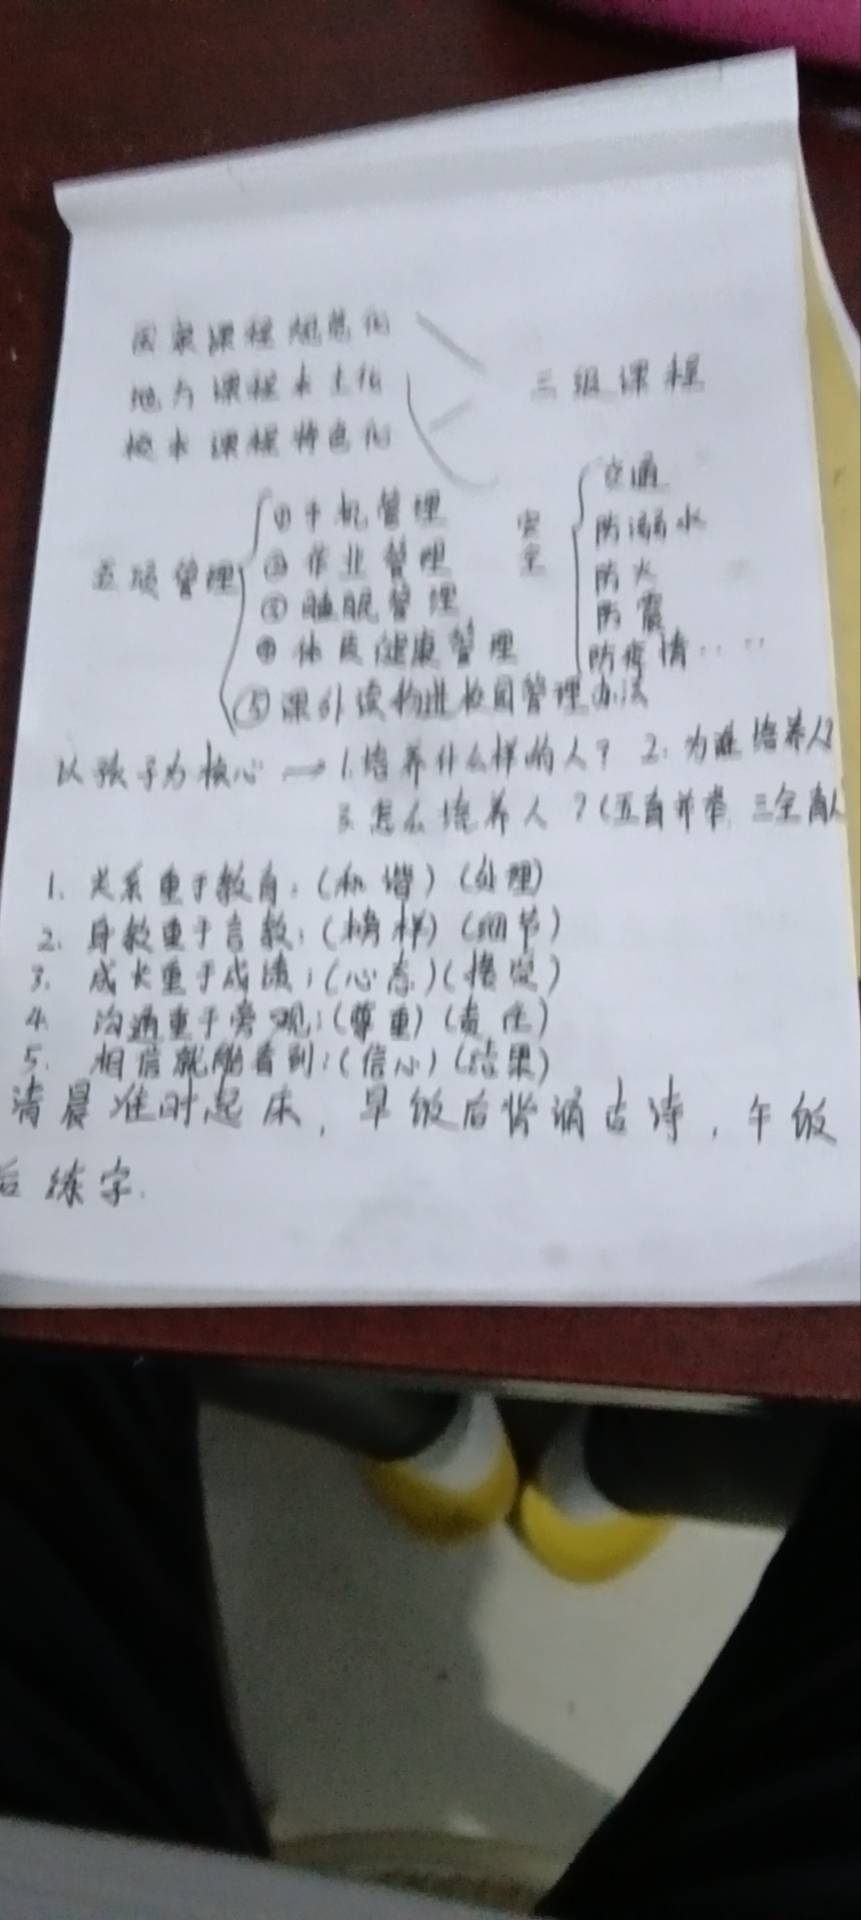 国家课程规范化
地方课程本土化
三级课程
校本课程特色化
五项管理
①手机管理
②作业管理
③睡眠管理
④体质健康管理
⑤课外读物进校园管理办法
安全
交通
防溺水
防火
防震
防疫情····
以孩子为核心→1.培养什么样的人？2.为谁培养人？
3.怎么培养人？(五育并举,三全育人
1.关系重于教育：(和谐)(处理)
2.身教重于言教：(榜样)(细节)
3.成长重于成绩；(心态)(接受)
4.沟通重于旁观：(尊重)(责任)
5.相信就能看到：(信心)(结果)
清晨准时起床，早饭后背诵古诗，午饭
后练字.